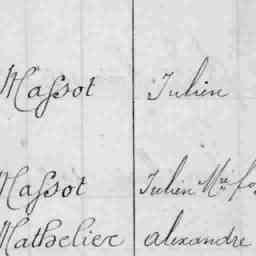 Massot Julien
Massot Julien Mre
Mathelier alexandre